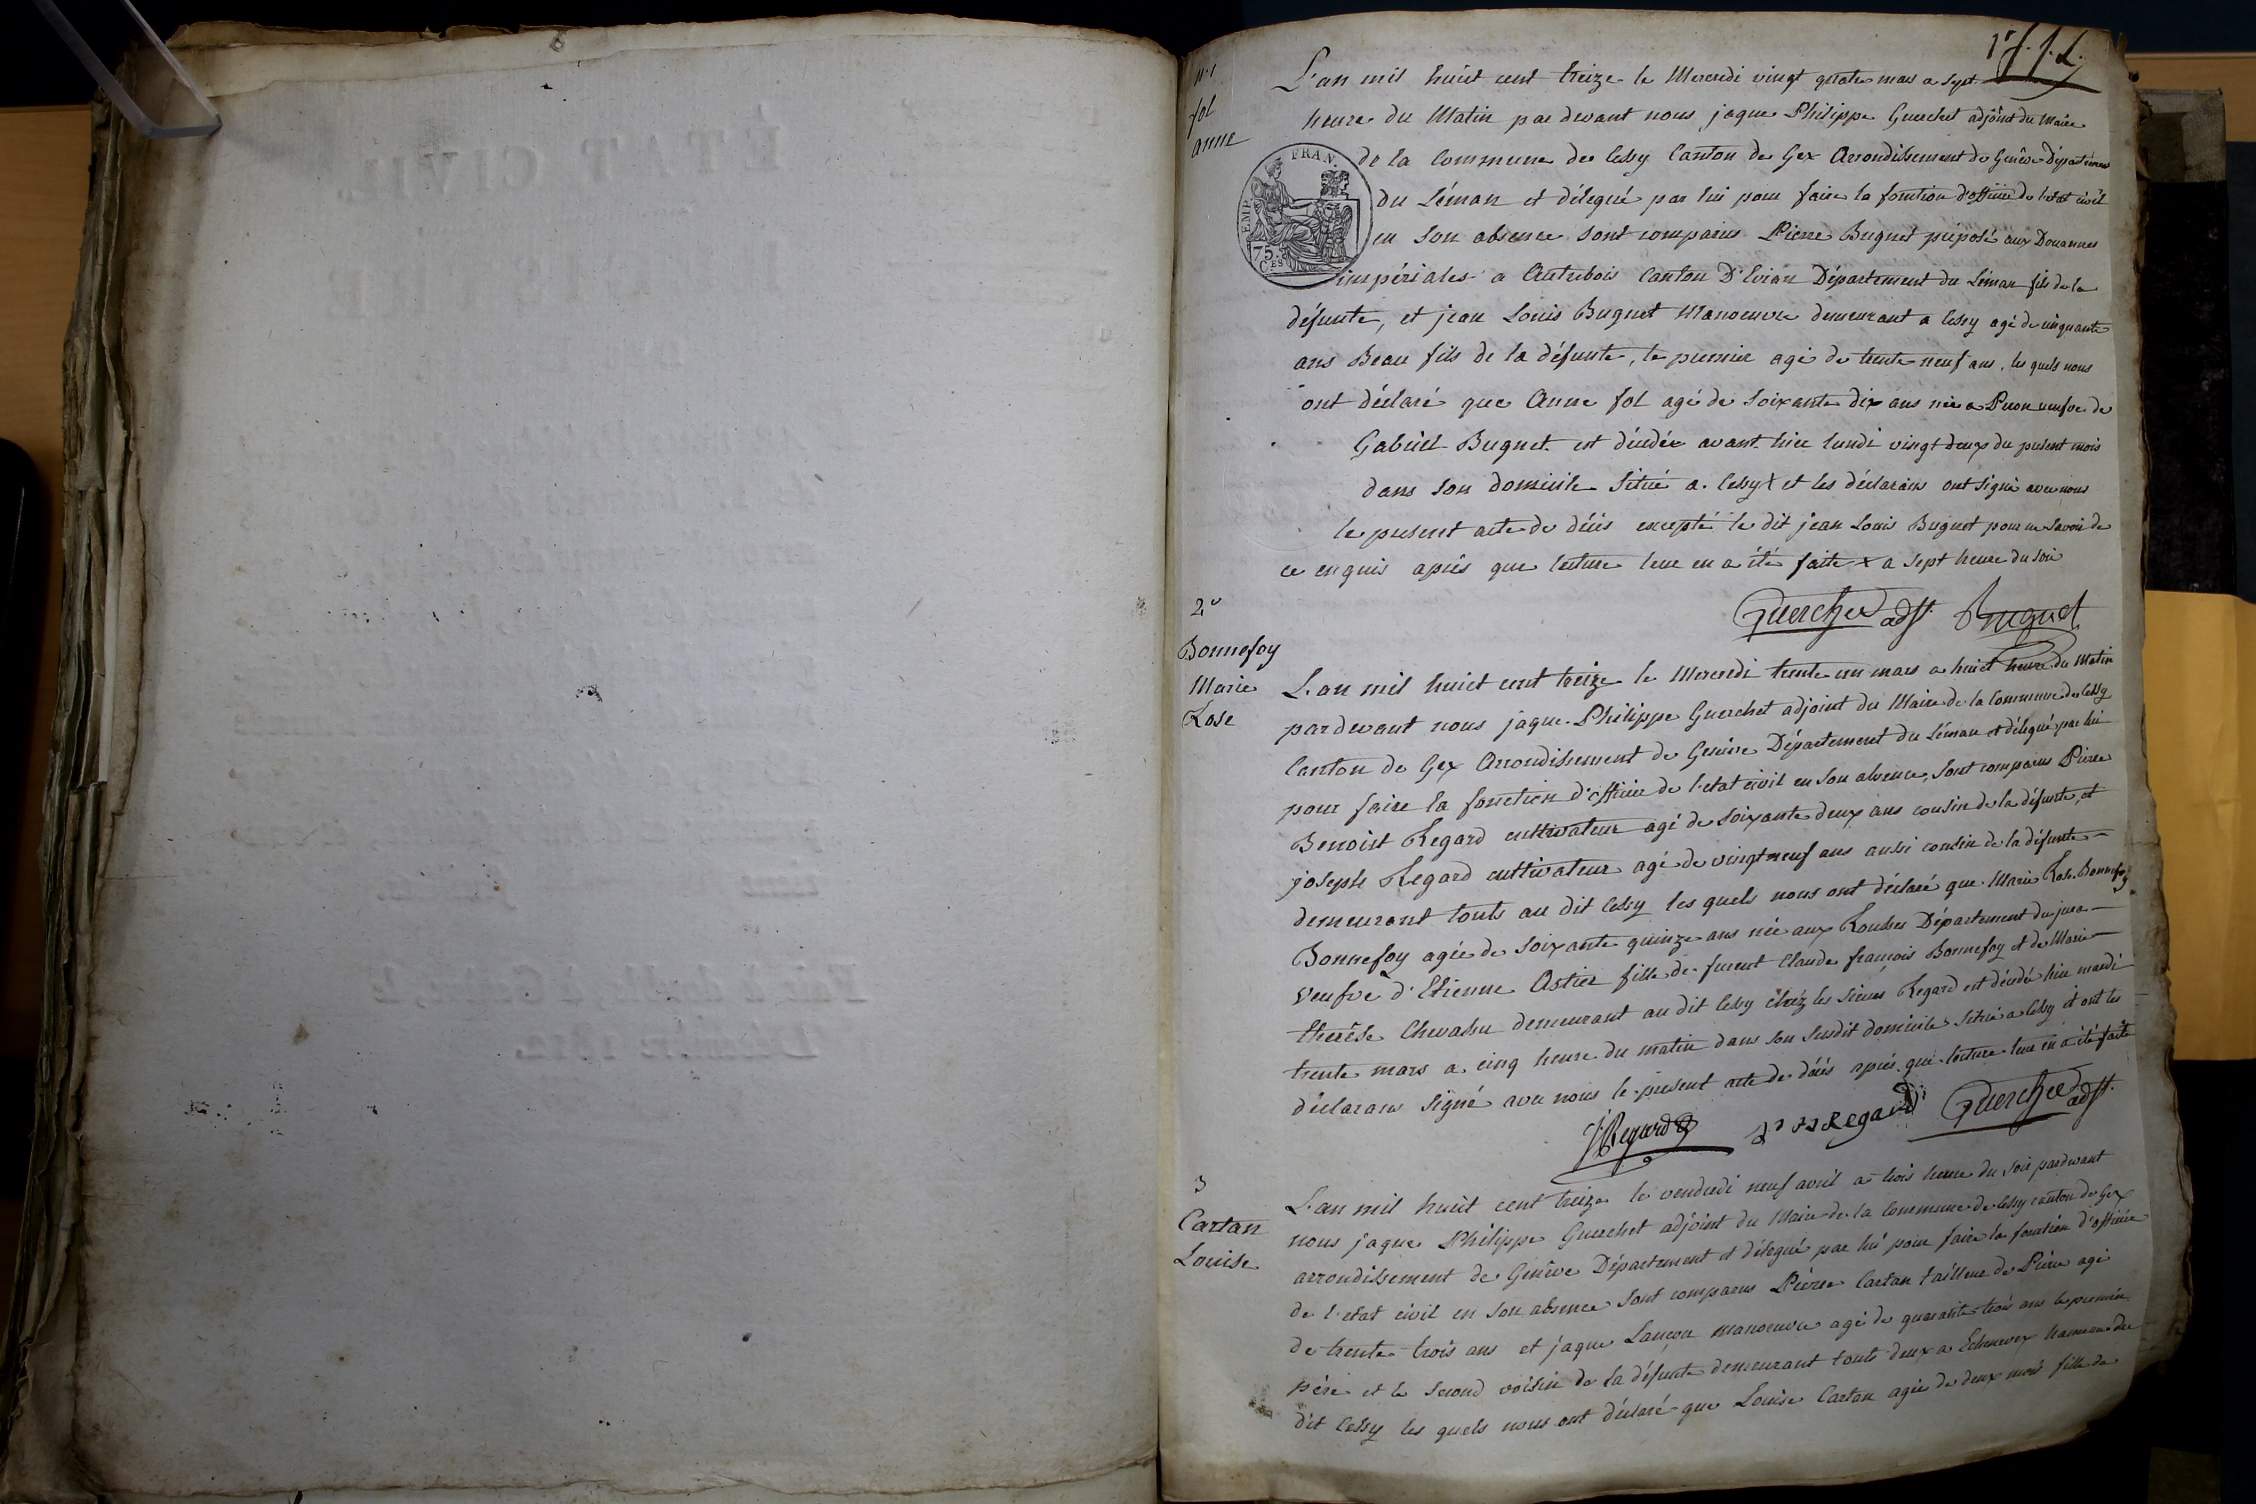 1er f. J.
N.1
fol
anne
L'an mil huit cent treize le Mercredi vingt quatre mars a sept
heure du Matin par devant nous jaque Philippe Guerchet adjoint du Maire
de la Commune de Cessy Canton de Gex Arrondissement de Genêve Département
du Léman et délegué par lui pour faire la fonction d'officier de l'etat civil
en son absence sont comparus Pierre Buguet préposé aux Douannes
impériales a Autrebois Canton D'Evian Département du Léman fils de la
défunte, et jean Louis Buguet Manoeuvre demeurant a Cessy agé de cinquante
ans Beau fils de la défunte, le premier agé de trente neuf ans, les quels nous
ont déclaré que Anne fol agé de soixante dix ans née a veufve de
Gabriel Buguet est décédée avant hier lundi vingt deux du present mois
dans son domicile situé a Cessy X et les déclarans ont signé avec nous
le present acte de décès excepté le dit jean Louis Buguet pour ne savoir de
ce enquis aprés que lecture leur en a été faite x a sept heure du soir
EMP. FRAN.
75. CES
Guerchet adjt. Buguet
2e
Bonnefoy
Marie
Rose
L'an mil huict cent treize le Mercredi trente un mars a huict heure du Matin
pardevant nous jaque Philippe Guerchet adjoint du Maire de la Commune de Cessy
Canton de Gex Arrondissement de Genêve Département du Léman et délegué par lui
pour faire la fonction d'officier de l'etat civil en son absence, sont comparus Pierre
Benoist Regard cultivateur agé de soixante deux ans cousin de la défunte, et
joseph Regard cultivateur agé de vingt neuf ans aussi cousin de la défunte
demeurant touts au dit Cessy les quels nous ont déclaré que Marie Rose Bonnefoy
Bonnefoy agée de soixante quinze ans née aux Rousses Département du jura
veufve d'Etienne Astier fille de furent Claude françois Bonnefoy et de Marie
therèse Chevassu demeurant au dit Cessy chéz les sieurs Regard est décédé hier mardi
trente mars a cinq heure du matin dans son susdit domicile situé a Cessy et ont les
déclarans signé avec nous le present acte de décès aprés que lecture leur en a été faite
J Regard Regard Guerchet adjt.
3
Cartan
Louise
L'an mil huit cent treize le vendredi neuf avril a trois heure du soir pardevant
nous jaque Philippe Guerchet adjoint du Maire de la Commune de Cessy canton de Gex
arrondissement de Genêve Département et délegué par lui pour faire la fonction d'officier
de l'etat civil en son absence sont comparus Piérre Cartan tailleur de Piérre agé
de trente trois ans et jaque Lançon manoeuvre agé de quarante trois ans le premier
pére et le second voisin de la défunte demeurant touts deux a Echenevex hameau du
dit Cessy les quels nous ont déclaré que Louise Cartan agée de deux mois fille de